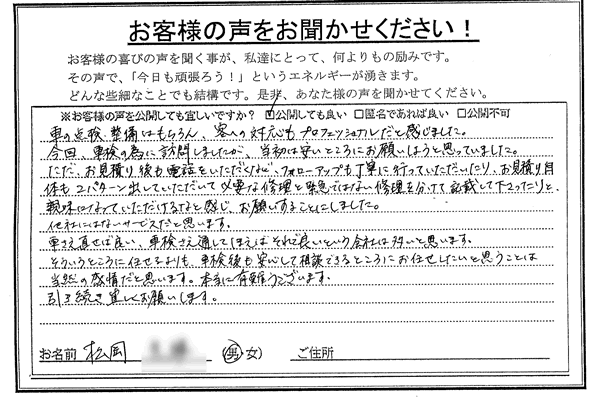 お客様の声をお聞かせください!
お客様の喜びの声を聞く事が、私達にとって、何よりもの励みです。
その声で、「今日も頑張ろう!」というエネルギーが湧きます。
どんな些細なことでも結構です。是非、あなた様の声を聞かせてください。
※お客様の声を公開しても宜しいですか? ☑公開しても良い □匿名であれば良い □公開不可
車の点検、整備はもちろん、客への対応もプロフェッショナルだと感じました。
今回、車検の為に訪問しましたが、当初は安いところにお願いしようと思っていました。
ただ、お見積り後も電話をいただくなど、フォローアップも丁寧に行っていただいたり、お見積り自
体も2パターン出していただいて必要な修理と緊急ではない修理を分けて記載して下さったりと、
親味になっていただけるなと感じ、お願いすることにしました。
他社にはないサービスだと思います。
車さえ直せば良い、車検さえ通してしまえばそれで良いという会社は多いと思います。
そういうところに任せるよりも、車検後も安心して相談できるところにお任せしたいと思うことは
当然の感情だと思います。本当に有難うございます。
引き続き宜しくお願いします。
お名前 松岡 (男・女) ご住所